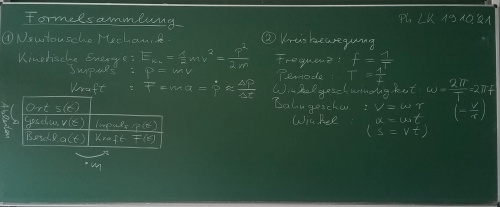 Formelsammlung
Ph LK 19.10.21
① Newtonsche Mechanik
Kinetische Energie: E_kin = 1/2 mv² = p²/2m
Impuls: p = mv
Kraft: F = ma = ṗ ≈ Δp/Δt
Ableiten
Ort s(t)
Geschw. v(t) Impuls p(t)
Beschl. a(t) Kraft F(t)
·m
② Kreisbewegung
Frequenz: f = 1/T
Periode: T = 1/f
Winkelgeschwindigkeit ω = 2π/T = 2πf
Bahngeschw.: v = ωr (= v/r)
Winkel: α = ωt
(s = vt)